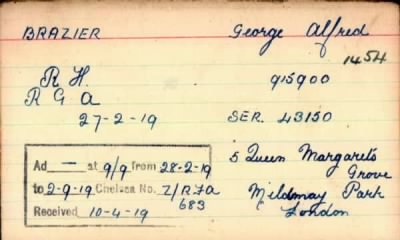 BRAZIER George Alfred
1454
R H. 915900
R G A
27-2-19 SER. 43150
Ad — at 9/9 from 28-2-19
to 2-9-19 Chelsea No. Z/RFA
683
Received 10-4-19
5 Queen Margarets
Grove
Mildmay Park
London